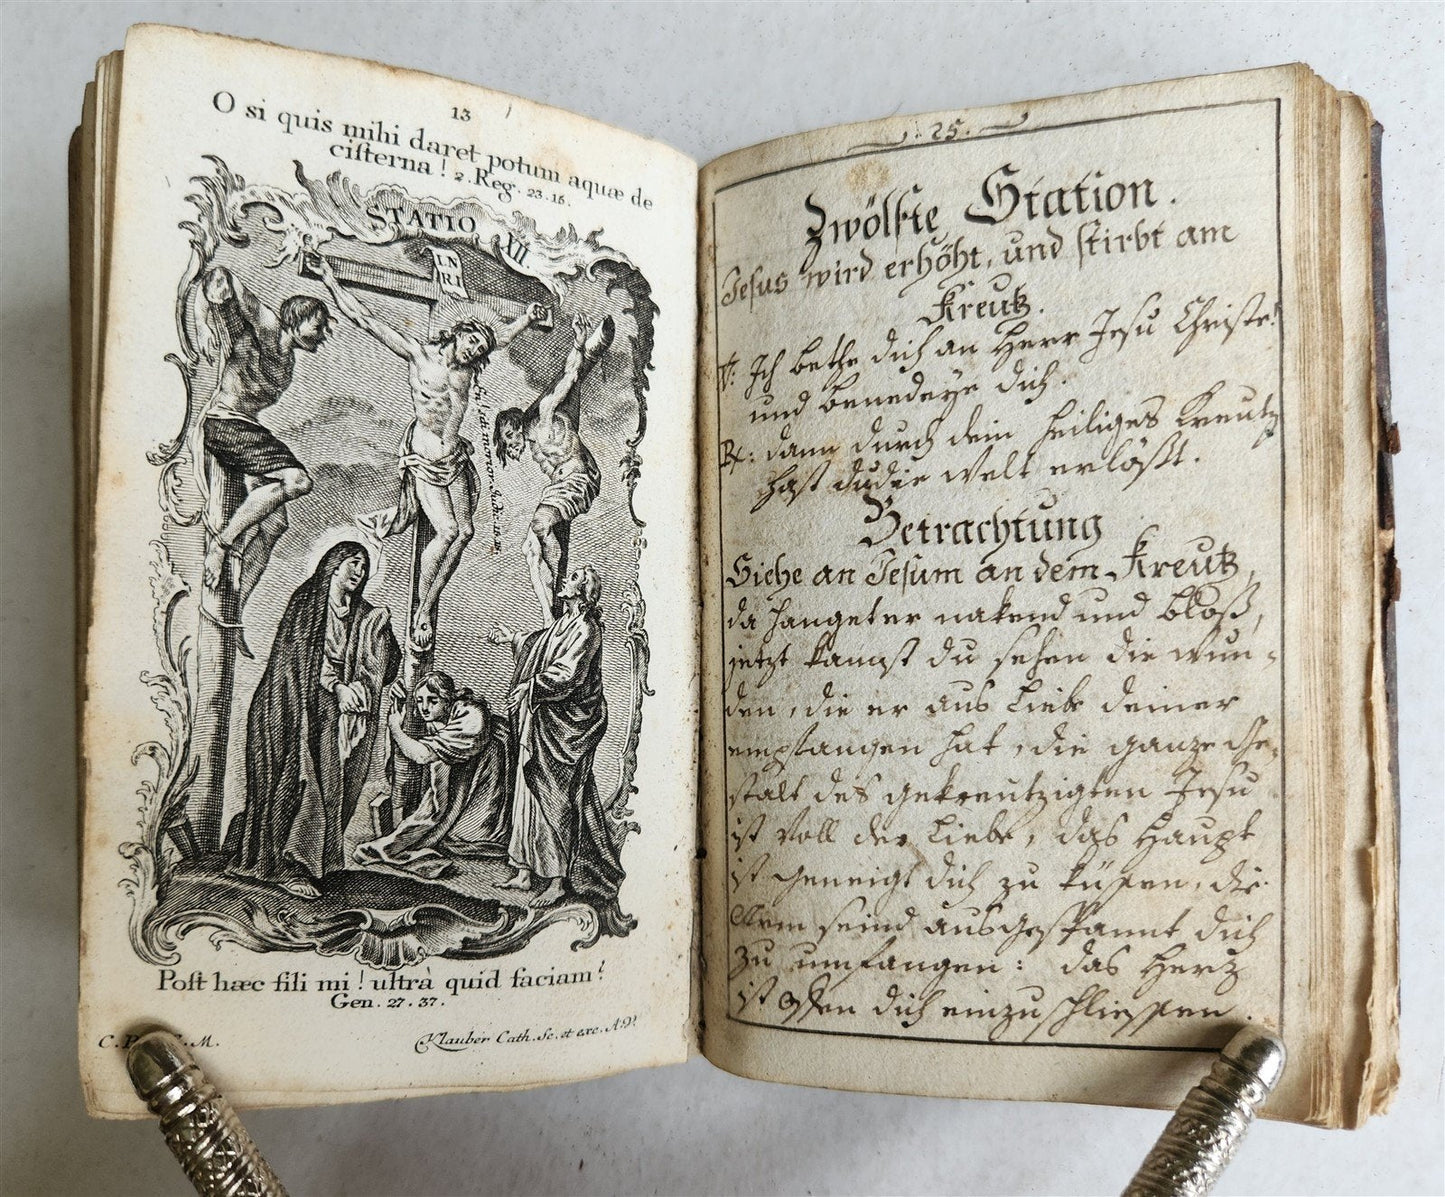 13
O si quis mihi daret potum aquæ de
ciſterna! 2. Reg. 23. 15.
STATIO XII
IN
RI
Poſt hæc fili mi! ultrà quid faciam?
Gen. 27. 37.
C. P. C. M.
Klauber Cath. Sc. et exc. A. V.
. 25 .
Zwölfte Station.
Jeſus wird erhöht, und ſtirbt am
Kreutz.
V: Ich bethe dich an Herr Jeſu Chriſte!
und benedeye dich.
R: dann durch dein heiliges Kreutz
haſt du die Welt erlößt.
Betrachtung
Siehe an Jeſum an dem Kreutz,
da hanget er nakend und bloß,
jetzt kannſt du ſehen die Wun-
den, die er aus Liebe deiner
empfangen hat, die ganze Ge-
ſtalt des gekreutzigten Jeſu
iſt voll der Liebe, das Haupt
iſt geneigt dich zu küſſen, die
Arm ſeind ausgeſpannt dich
zu umfangen: das Hertz
iſt offen dich einzuſchlieſſen.